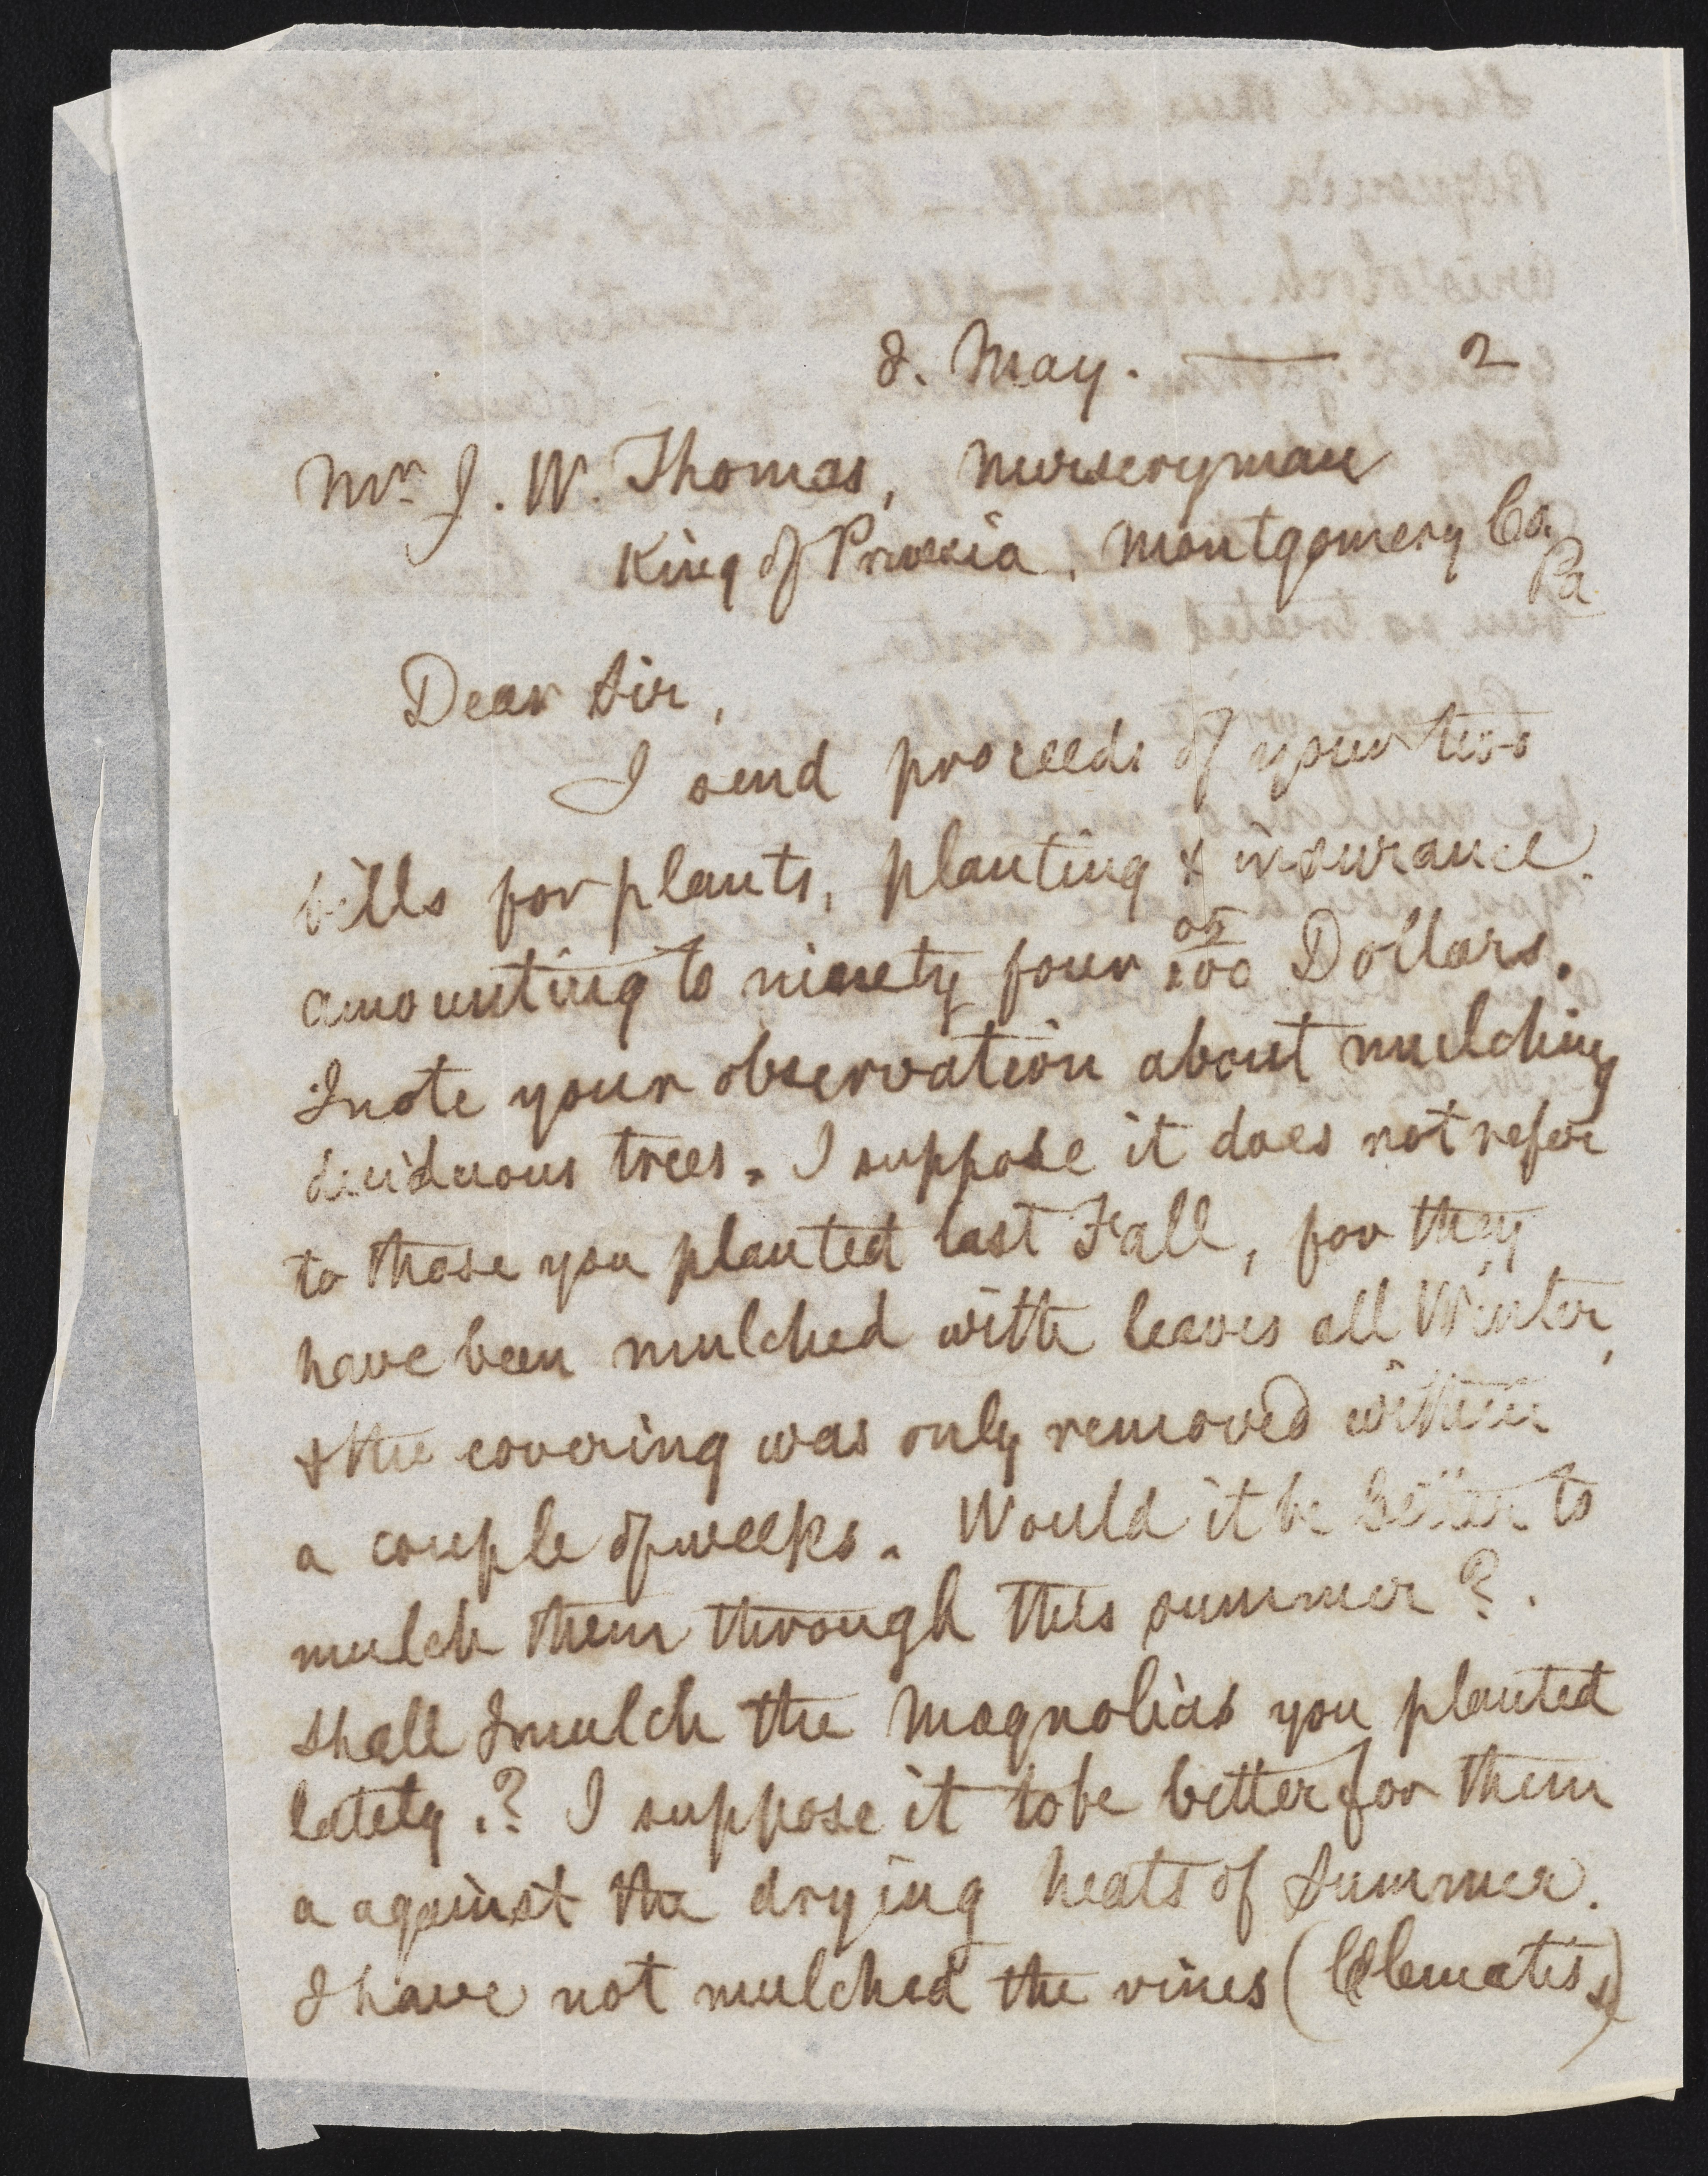 8. May. — 2
Mr J. W. Thomas, Nurseryman
King of Prussia, Montgomery Co.
Pa
Dear Sir,
I send proceeds of your two
bills for plants, planting & insurance.
amounting to ninety four 05/100 Dollars.
I note your observation about mulching
deciduous trees. I suppose it does not refer
to those you planted last Fall, for they
have been mulched with leaves all Winter,
& the covering was only removed within
a couple of weeks. Would it be better to
mulch them through this summer?.
Shall I mulch the Magnolias you planted
lately.? I suppose it to be better for them
a against the drying heats of Summer.
I have not mulched the vines (Clematis,)